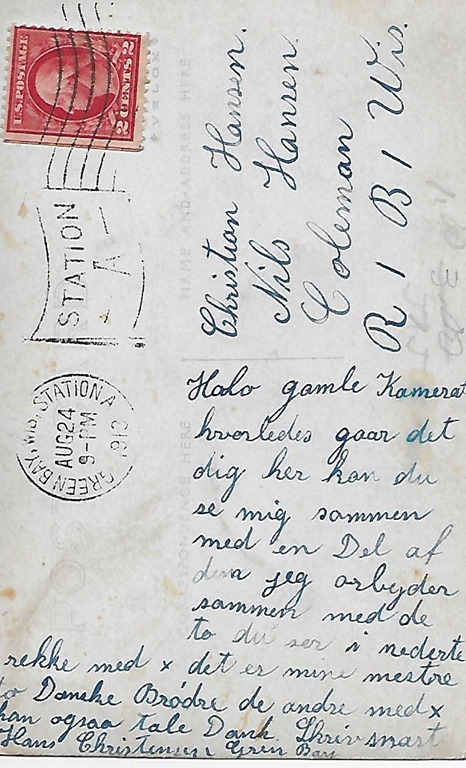 U.S. POSTAGE
2 CENTS 2
STATION
A
GREEN BAY, WIS. STATION A
AUG 24
9-PM
1913
VELOX
NAME AND ADDRESS HERE
Christian Hansen.
Nils Hansen.
Coleman
R 1 B 1 Wis.
Halo gamle Kamerat
hvorledes gaar det
dig her kan du
se mig sammen
med en Del af
dem jeg arbyder
sammen med de
to du ser i nederte
rekke med x det er mine mestre
to Danske Brödre de andre med x
kan ogsaa tale Dansk. Skriv snart
Hans Christensen Gren Bay